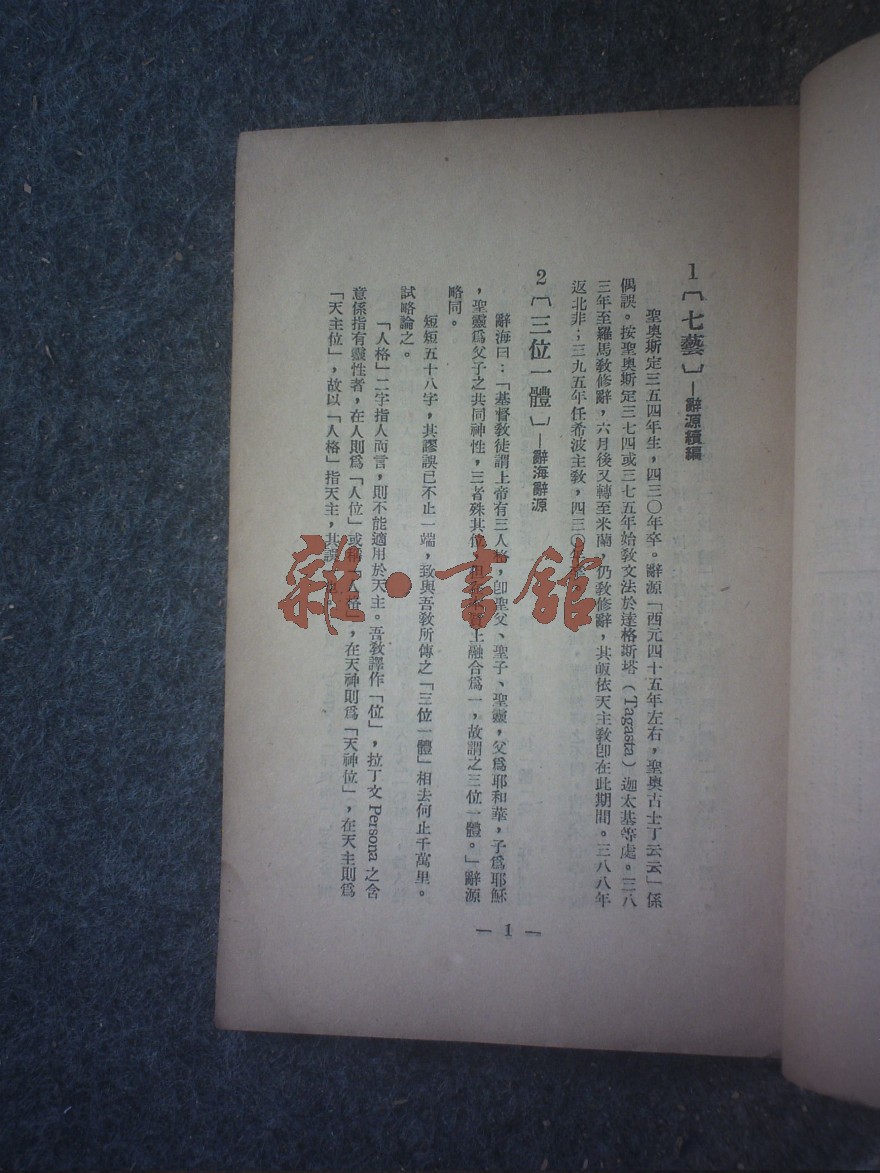 1〔七藝〕—辭源續編
聖奧斯定三五四年生，四三〇年卒。辭源「西元四十五年左右，聖奧古士丁云云」係
偶誤。按聖奧斯定三七四或三七五年始教文法於達格斯塔（Tagasta）迦太基等處。三八
三年至羅馬教修辭，六月後又轉至米蘭，仍教修辭，其皈依天主教卽在此期間。三八八年
返北非；三九五年任希波主教，四三〇年
2〔三位一體〕—辭海辭源
辭海曰：「基督教徒謂上帝有三人格，卽聖父、聖子、聖靈，父爲耶和華，子爲耶穌
，聖靈爲父子之共同神性，三者殊其位，但 上融合爲一，故謂之三位一體。」辭源
略同。
短短五十八字，其謬誤已不止一端，致與吾教所傳之「三位一體」相去何止千萬里。
試略論之。
「人格」二字指人而言，則不能適用於天主。吾教譯作「位」，拉丁文 Persona 之含
意係指有靈性者，在人則爲「人位」或稱「人 ，在天神則爲「天神位」，在天主則爲
「天主位」，故以「人格」指天主，其誤
— 1 —
雜·書館